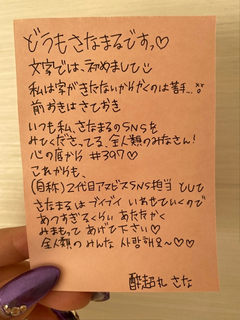 どうもさなまるですっ♡
文字では、初めまして
私は字がきたないからかくのは苦手…
前おきはさておき
いつも私、さなまるのSNSを
みてくださってる、全人類のみなさん!
心の底から #397♡
これからも、
(自称)2代目アマビスSNS担当 として
さなまるは ブイブイ いわせていくので
あつすぎるくらい あたたかく
みまもって あげて下さい♡
全人類のみんな 사랑해요~♡♡
さな